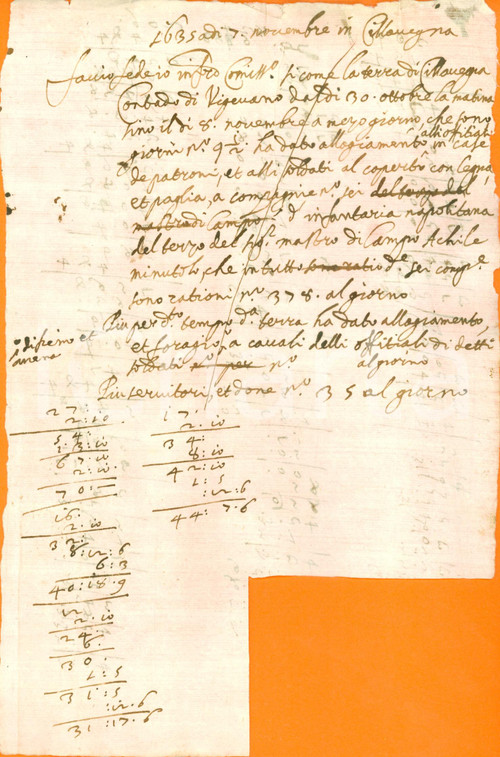 1635 adi 7. novembre in Cillavegna
faccio fede io infro Comiss.o si come la terra di Cillavegna
Contado di Vigevano dal di 30. ottobre la matina
sino il di 8. novembre a mezo giorno, che sono
giorni n.o 9½ ha dato allogiamento alli offitiali in case
de patroni, et alli soldati al coperto con legna,
et paglia, a compagnie n.o sei del terzo del
mastro di Campo d'infantaria napolitana
del terzo del sig.r mastro di Campo Achile
minutolo, che in tutto sono ratio d.e sei comp.e
sono rationi n.o 378. al giorno
Piu per d.o tempo d.a terra ha dato allogiamento,
et foragio, di fieno et avena a cavali delli offitiali di detti
soldati n.o per n.o al giorno
Piu servitori, et done n.o 35 al giorno
27.
2:10
54.
13:10
67.10
2:10
70.
16.
2.10
32.
8:12:6
6:3
40:18.9
12.
2.10
24.
6.
30.
1:5
31:5
:12.6
31:17.6
17.
2:10
34:
8:10
42:10
1:5
:12:6
44:7.6